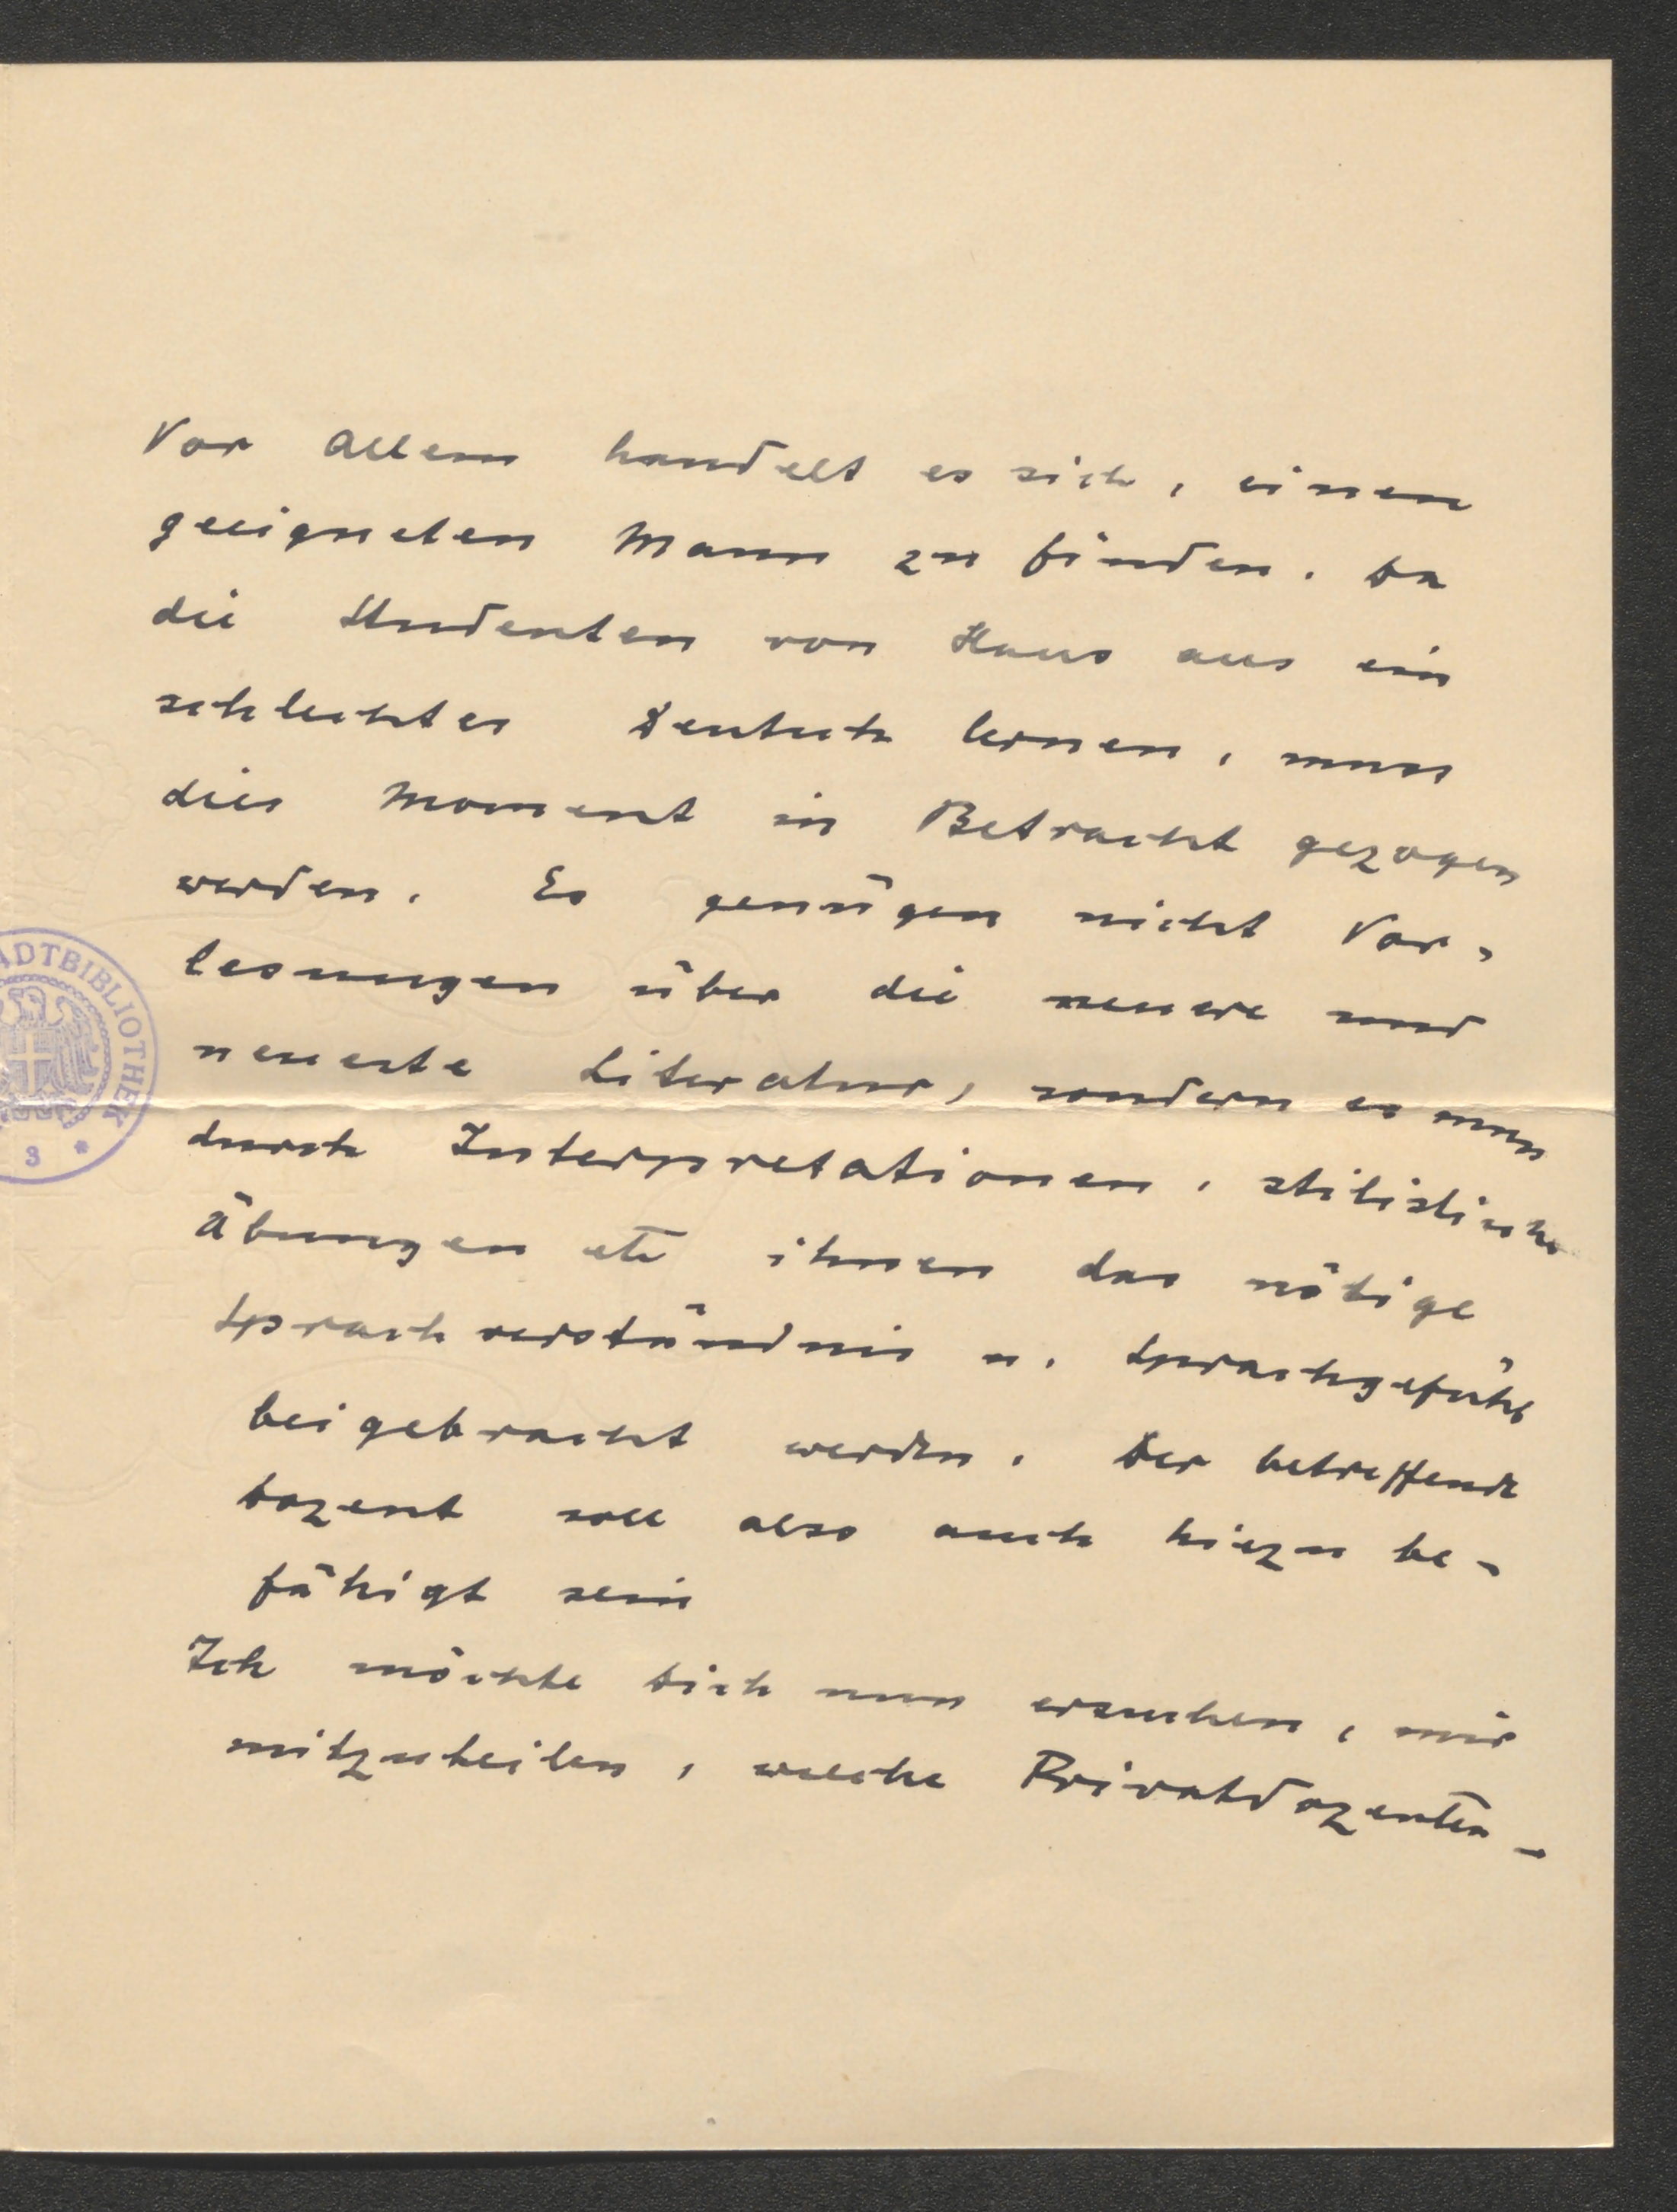 Vor allem handelt es sich, einen
geeigneten Mann zu finden. Da
die Studenten von Haus aus ein
schlechtes Deutsch lernen, muss
dies Moment in Betracht gezogen
werden. Es genügen nicht Vor-
lesungen über die neuere und
neueste Literatur, sondern es muss
durch Interpretationen, stilistische
Übungen etc ihnen das nötige
Sprachverständnis u. Sprachgefühl
beigebracht werden. Der betreffende
Dozent soll also auch hiezu be-
fähigt sein
Ich möchte Dich nun ersuchen, mir
mitzuteilen, welche Privatdozenten -
ADTBIBLIOTHEK
3 *